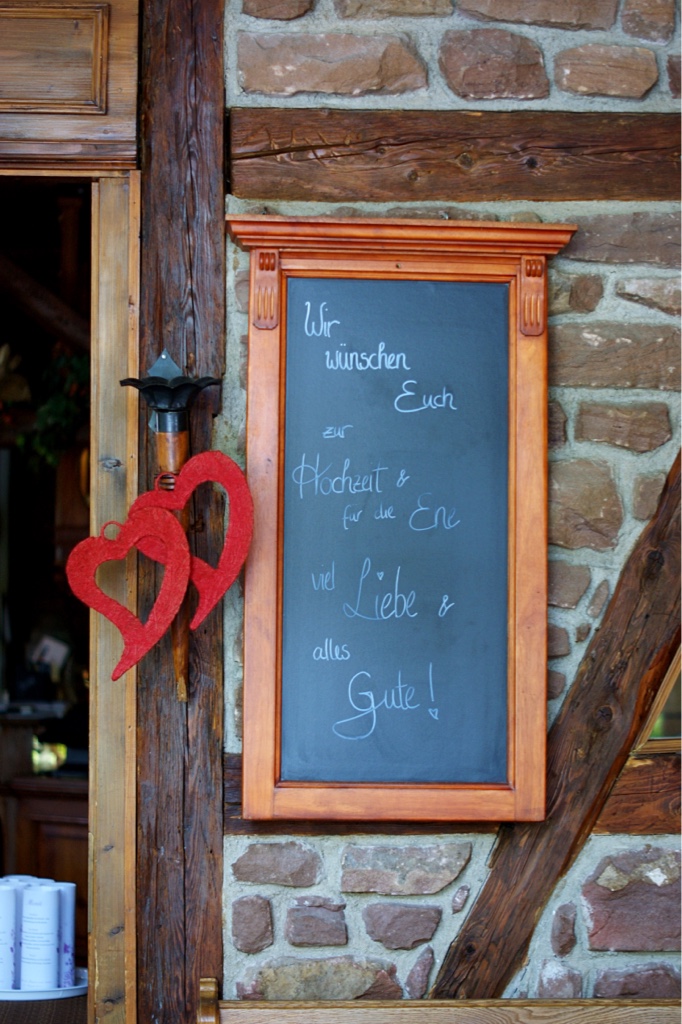 Wir
wünschen
Euch
zur
Hochzeit &
für die Ehe
viel Liebe &
alles
Gute!